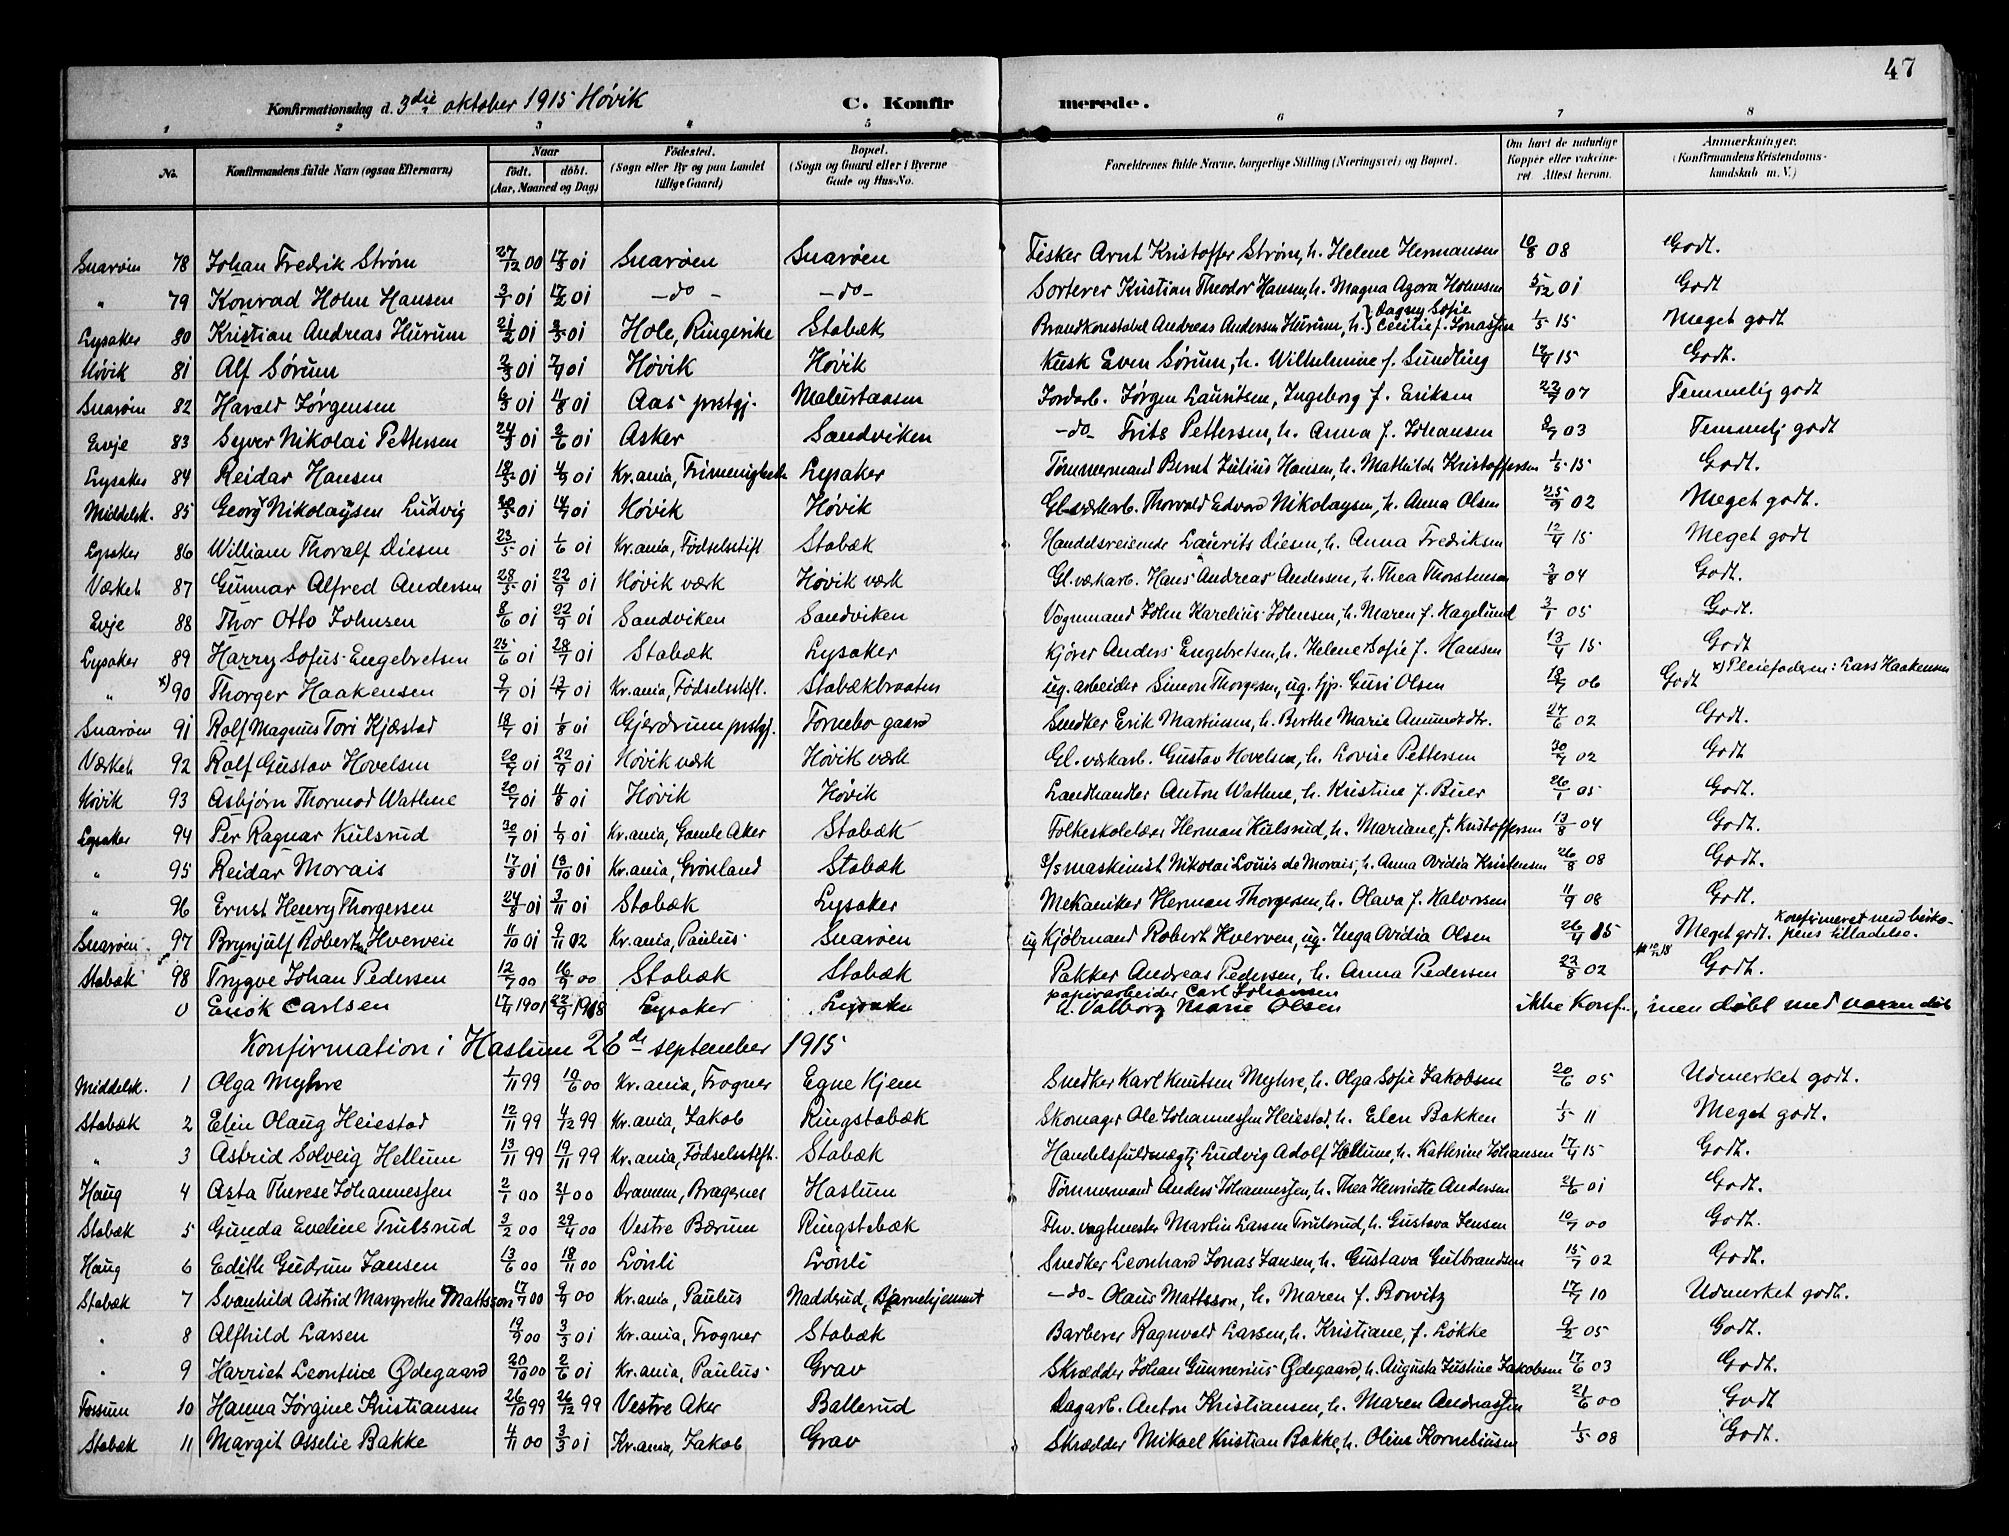 47
Konfirmationsdag d. 3die oktober 1915 Høvik C. Konfirmerede.
1 2 3 4 5 6 7 8
No. Konfirmandens fulde Navn (ogsaa Efternavn) Naar født. døbt. (Aar, Maaned og Dag) Fødested. (Sogn eller By og paa Landet tillige Gaard) Bopæl. (Sogn og Gaard eller i Byerne Gade og Hus-No. Forældrenes fulde Navne, borgerlige Stilling (Næringsvei) og Bopæl. Om havt de naturlige Kopper eller vaccineret. Attest herom. Anmærkninger. (Konfirmandens Kristendomskundskab m. V.)
Snarøen 78 Johan Fredrik Strøm 27/12 00 17/3 01 Snarøen Snarøen Fisker Arnt Kristoffer Strøm, h. Helene Hermansen 10/8 08 Godt.
" 79 Konrad Holm Hansen 3/1 01 17/2 01 -do- -do- Sorterer Kristian Theodor Hansen, h. Magna Agora Holmsen 5/12 01 Godt
Lysaker 80 Kristian Andreas Hurum 21/2 01 /5 01 Hole, Ringerike Stabæk Brandkonstabel Andreas Andersen Hurum, h. } Dagny Sofie Cecilie f. Jonassen 1/5 15 Meget godt
Høvik 81 Alf Sørum 2/3 01 7/4 01 Høvik Høvik Kusk Even Sørum, h. Wilhelmine f. Sundling 17/4 15 Godt.
Snarøen 82 Harald Jørgensen 6/3 01 11/8 01 Aas prstgj. Jordarb. Jørgen Lauritsen, Ingeborg f. Eriksen 22/7 07 Temmelig godt
Evje 83 Syver Nikolai Pettersen 24/3 01 2/6 01 Asker Sandviken -do- Frits Pettersen, h. Anna f. Johansen 8/7 03 Temmelig godt
Lysaker 84 Reidar Hansen 18/5 01 4/9 01 Kr.ania, Frimenigheden Lysaker Tømmermand Bernt Julius Hansen, h. Mathilde Kristoffersen 1/5 15 Godt.
Middelsk. 85 Georg Nikolaysen Ludvig 20/5 01 14/7 01 Høvik Høvik Gl.værkarb. Thorvald Edvard Nikolaysen, h. Anna Olsen 25/9 02 Meget godt.
Lysaker 86 William Thoralf Diesen 23/5 01 1/6 01 Kr.ania, Fødselsstift Stabæk Handelsreisende Laurits Diesen, h. Anna Fredriksen 12/4 15 Meget godt
Værket 87 Gunnar Alfred Andersen 28/5 01 22/9 01 Høvik værk Høvik værk Gl.værkarb. Hans Andreas Andersen, h. Thea Thorstensen 3/8 04 Godt.
Evje 88 Thor Otto Johnsen 8/6 01 22/9 01 Sandviken Sandviken Vognmand John Karelius Johnsen, h. Maren f. Hagelund 3/1 05 Godt.
Lysaker 89 Harry Sofus Engebretsen 25/6 01 28/7 01 Stabæk Lysaker Kjører Anders Engebretsen, h. Helene Sofie f. Hansen 13/4 15 Godt
" x) 90 Thorger Haakensen 9/7 01 17/7 01 Kr.ania, Fødselsstift. Stabækbraaten ug. arbeider Simon Thorgersen, ug. tjp. Guri Olsen 18/7 06 Godt x) Pleiefaderen: Lars Haakensen
Snarøen 91 Rolf Magnus Tori Kjæstad 18/7 01 1/8 01 Gjerdrum prstgj. Fornebo gaard Snedker Erik Martinsen, h. Berthe Marie Amundsdtr. 27/6 02 Godt.
Værket 92 Rolf Gustav Hovelsen 20/7 01 22/9 01 Høvik værk Høvik værk Gl.værkarb. Gustav Hovelsen, h. Lovise Pettersen 30/7 02 Godt
Høvik 93 Asbjørn Thormod Wathne 20/7 01 4/8 01 Høvik Høvik Landhandler Anton Wathne, h. Kristine f. Buer 26/1 05 Godt.
Lysaker 94 Per Ragnar Kulsrud 30/7 01 1/9 01 Kr.ania, Gamle Aker Stabæk Folkeskolelærer Herman Kulsrud, h. Mariane f. Kristoffersen 13/8 04 Godt.
" 95 Reidar Morais 17/8 01 13/10 01 Kr.ania, Grønland Stabæk s/s maskinist Nikolai Louis de Morais, h. Anna Ovidia Kristensen 26/8 08 Godt.
" 96 Ernst Henry Thorgersen 24/8 01 3/11 01 Stabæk Lysaker Mekaniker Herman Thorgersen, h. Olava f. Halvorsen 11/9 08 Godt.
Snarøen 97 Brynjulf Robert Hverven 11/10 01 9/11 02 Kr.ania, Paulus Snarøen ug Kjøbmand Robert Hverven, ug. Inga Ovidia Olsen 26/4 15 Meget godt. Konfirmeret med biskopens tilladelse.
Stabæk 98 Trygve Johan Pedersen 12/7 00 16/9 00 Stabæk Stabæk Pakker Andreas Pedersen, h. Anna Pedersen 22/8 02 Godt.
0 Erik Carlsen 17/4 1901 22/9 1918 Lysaker Lysaker papirarbeider Carl Johansen h. Valborg Marie Olsen ikke Konf., men døbt med voxen dåb
Konfirmation i Haslum 26de september 1915
Middelsk. 1 Olga Myhre 1/11 99 10/6 00 Kr.ania, Frogner Egne Hjem Snedker Karl Knutsen Myhre, h. Olga Sofie Jakobsen 20/6 05 Udmerket godt.
Stabæk 2 Elin Olaug Heiestad 12/11 99 4/12 99 Kr.ania, Jakob Ringstabæk Skomager Ole Johannessen Heiestad, h. Elen Bakken 1/5 11 Meget godt.
" 3 Astrid Solveig Hellum 13/11 99 19/11 99 Kr.ania, Fødselsstift. Stabæk Handelsfuldmægt. Ludvig Adolf Hellum, h. Kathrine Johansen 17/4 15 Godt.
Haug 4 Asta Therese Johannessen 2/1 00 21/1 00 Dramm, Bragernes Haslum Tømmermand Anders Johannessen, h. Thea Henriette Andersen 21/6 01 Godt.
Stabæk 5 Gunda Eveline Trulsrud 3/2 00 29/4 00 Vestre Bærum Ringstabæk Fhv. vagtmester Martin Larsen Trulsrud, h. Gustava Jensen 10/7 00 Godt.
Haug 6 Edith Gudrun Jansen 13/6 00 18/11 00 Lønli Lønli Snedker Leonhard Jonas Jansen, h. Gustava Gulbrandsen 15/7 02 Godt.
Stabæk 7 Svanhild Astrid Margrethe Mattsson 17/7 00 9/9 00 Kr.ania, Paulus Nadderud, Barnehjemmet -do- Olaus Mattsson, h. Maren f. Bowitz 17/7 10 Udmerket godt.
" 8 Alfhild Larsen 19/9 00 3/3 01 Kr.ania, Frogner Stabæk Barberer Ragnvald Larsen, h. Kristiane, f. Løkke 9/2 05 Godt.
" 9 Harriet Leontine Ødegaard 20/10 00 2/6 01 Kr.ania, Paulus Grav Skrædder Johan Gunnerius Ødegaard, h. Augusta Justine Jakobsen 17/6 03 Godt.
Fossum 10 Hanna Jørgine Kristiansen 26/10 99 26/12 99 Vestre Aker Ballerud Dagarb. Anton Kristiansen, h. Maren Andreassen 21/6 00 Godt
Stabæk 11 Margit Osselie Bakke 4/11 00 3/3 01 Kr.ania, Jakob Grav Skrædder Mikael Kristian Bakke, h. Oline Korneliusen 1/5 08 Godt.